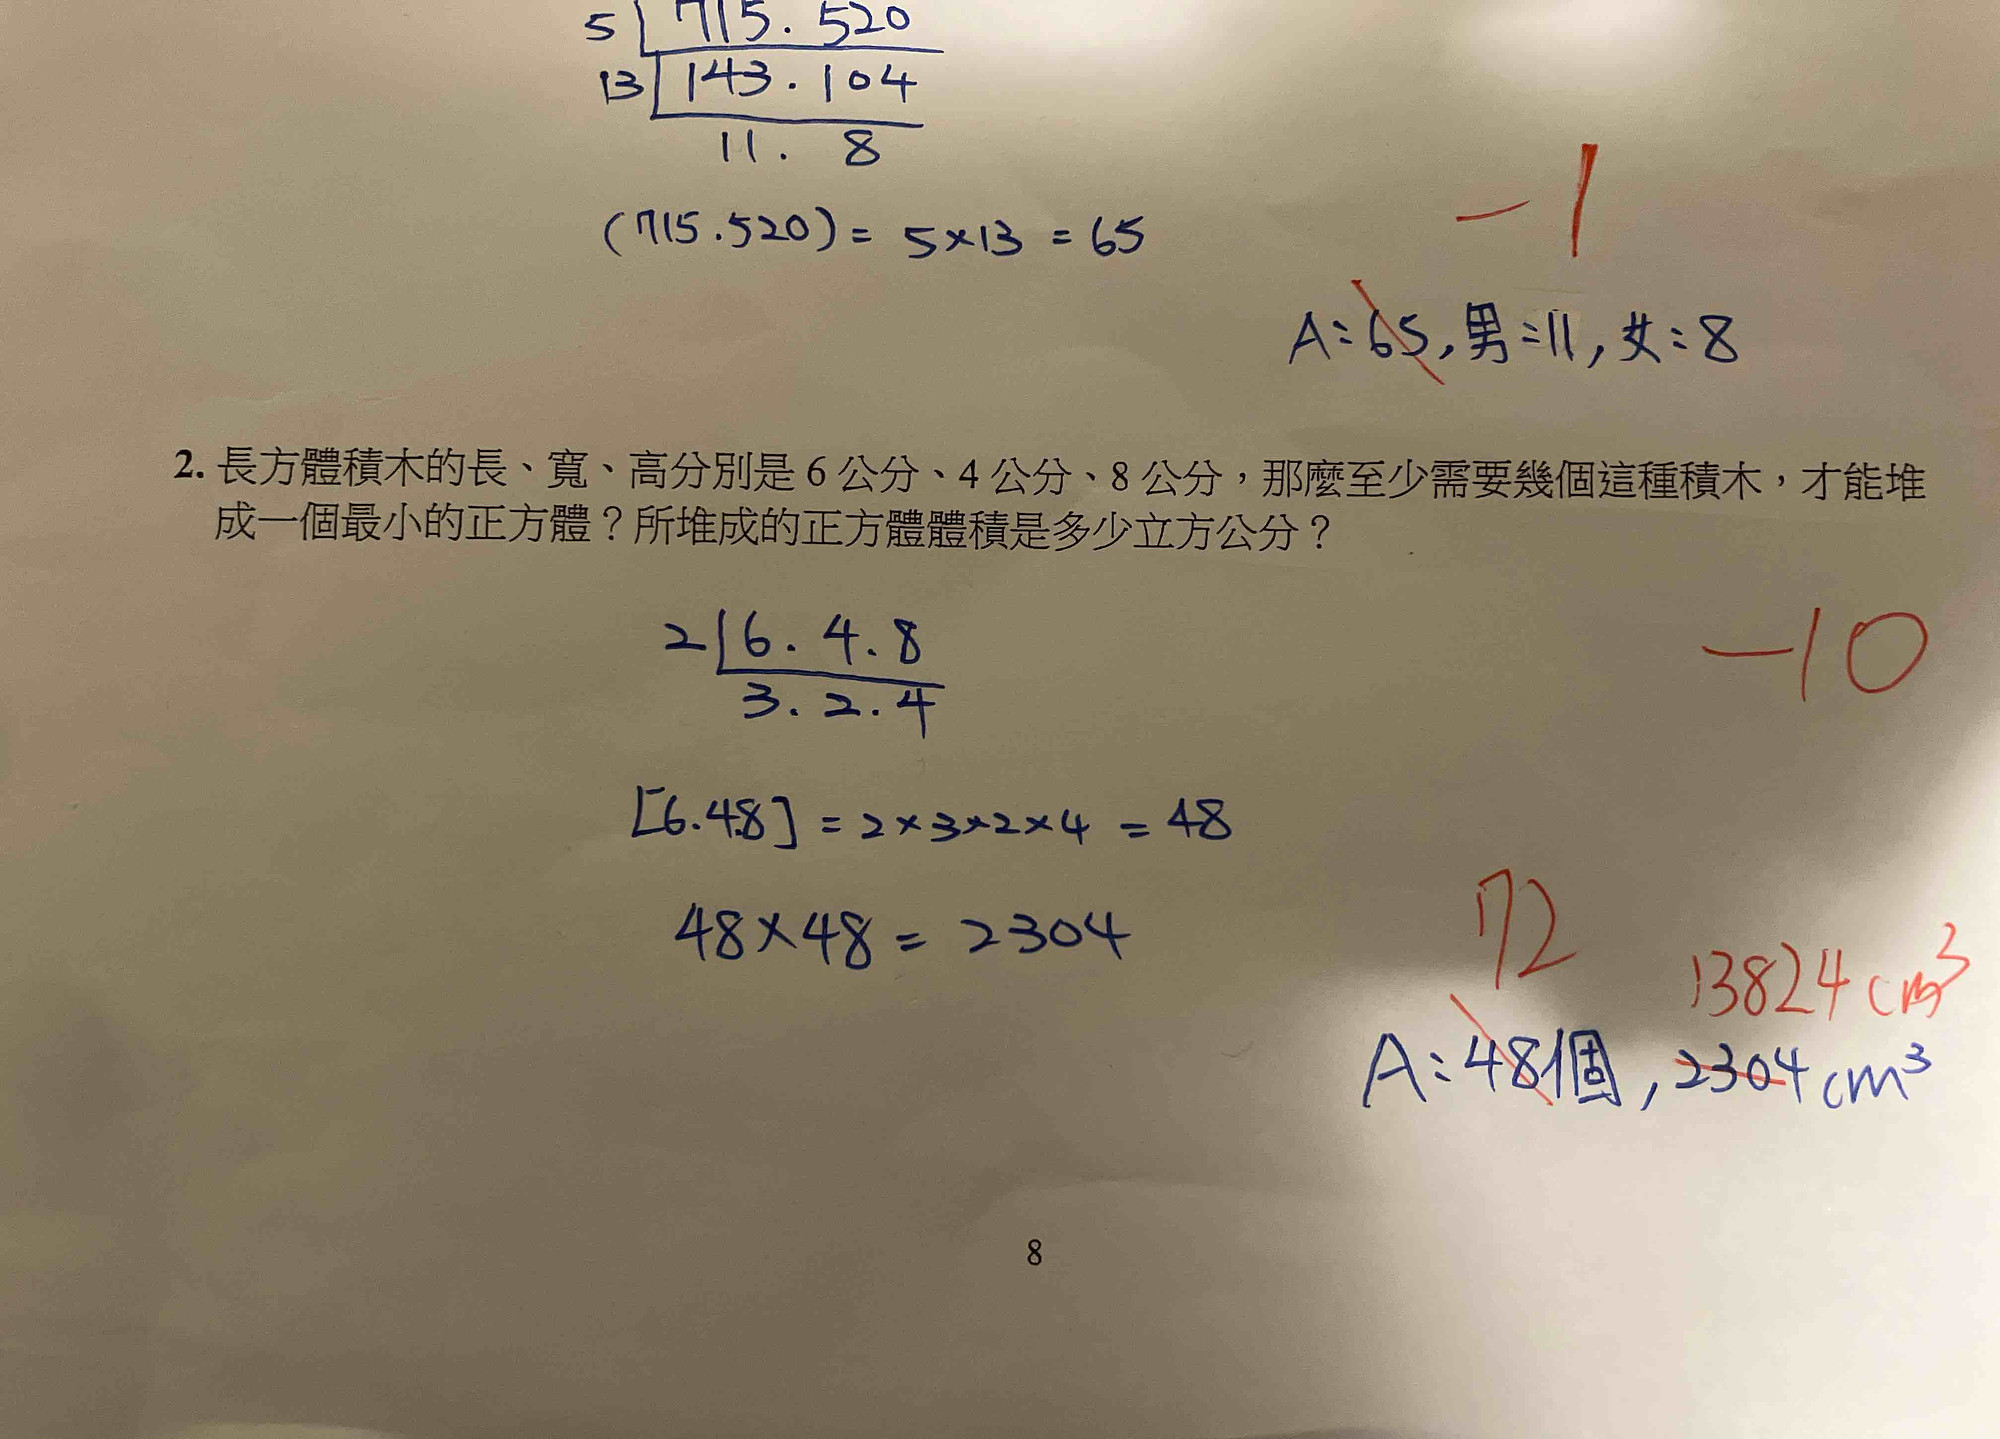 5 715. 520
13 143. 104
11. 8
(715.520) = 5×13 = 65
-1
A:65,男:11,女:8
2. 長方體積木的長、寬、高分別是 6 公分、4 公分、8 公分,那麼至少需要幾個這種積木,才能堆
成一個最小的正方體?所堆成的正方體體積是多少立方公分?
-10
2 6. 4. 8
3. 2. 4
[6.4.8] = 2×3×2×4 = 48
48×48 = 2304
72
13824 cm³
A:48個, 2304 cm³
8